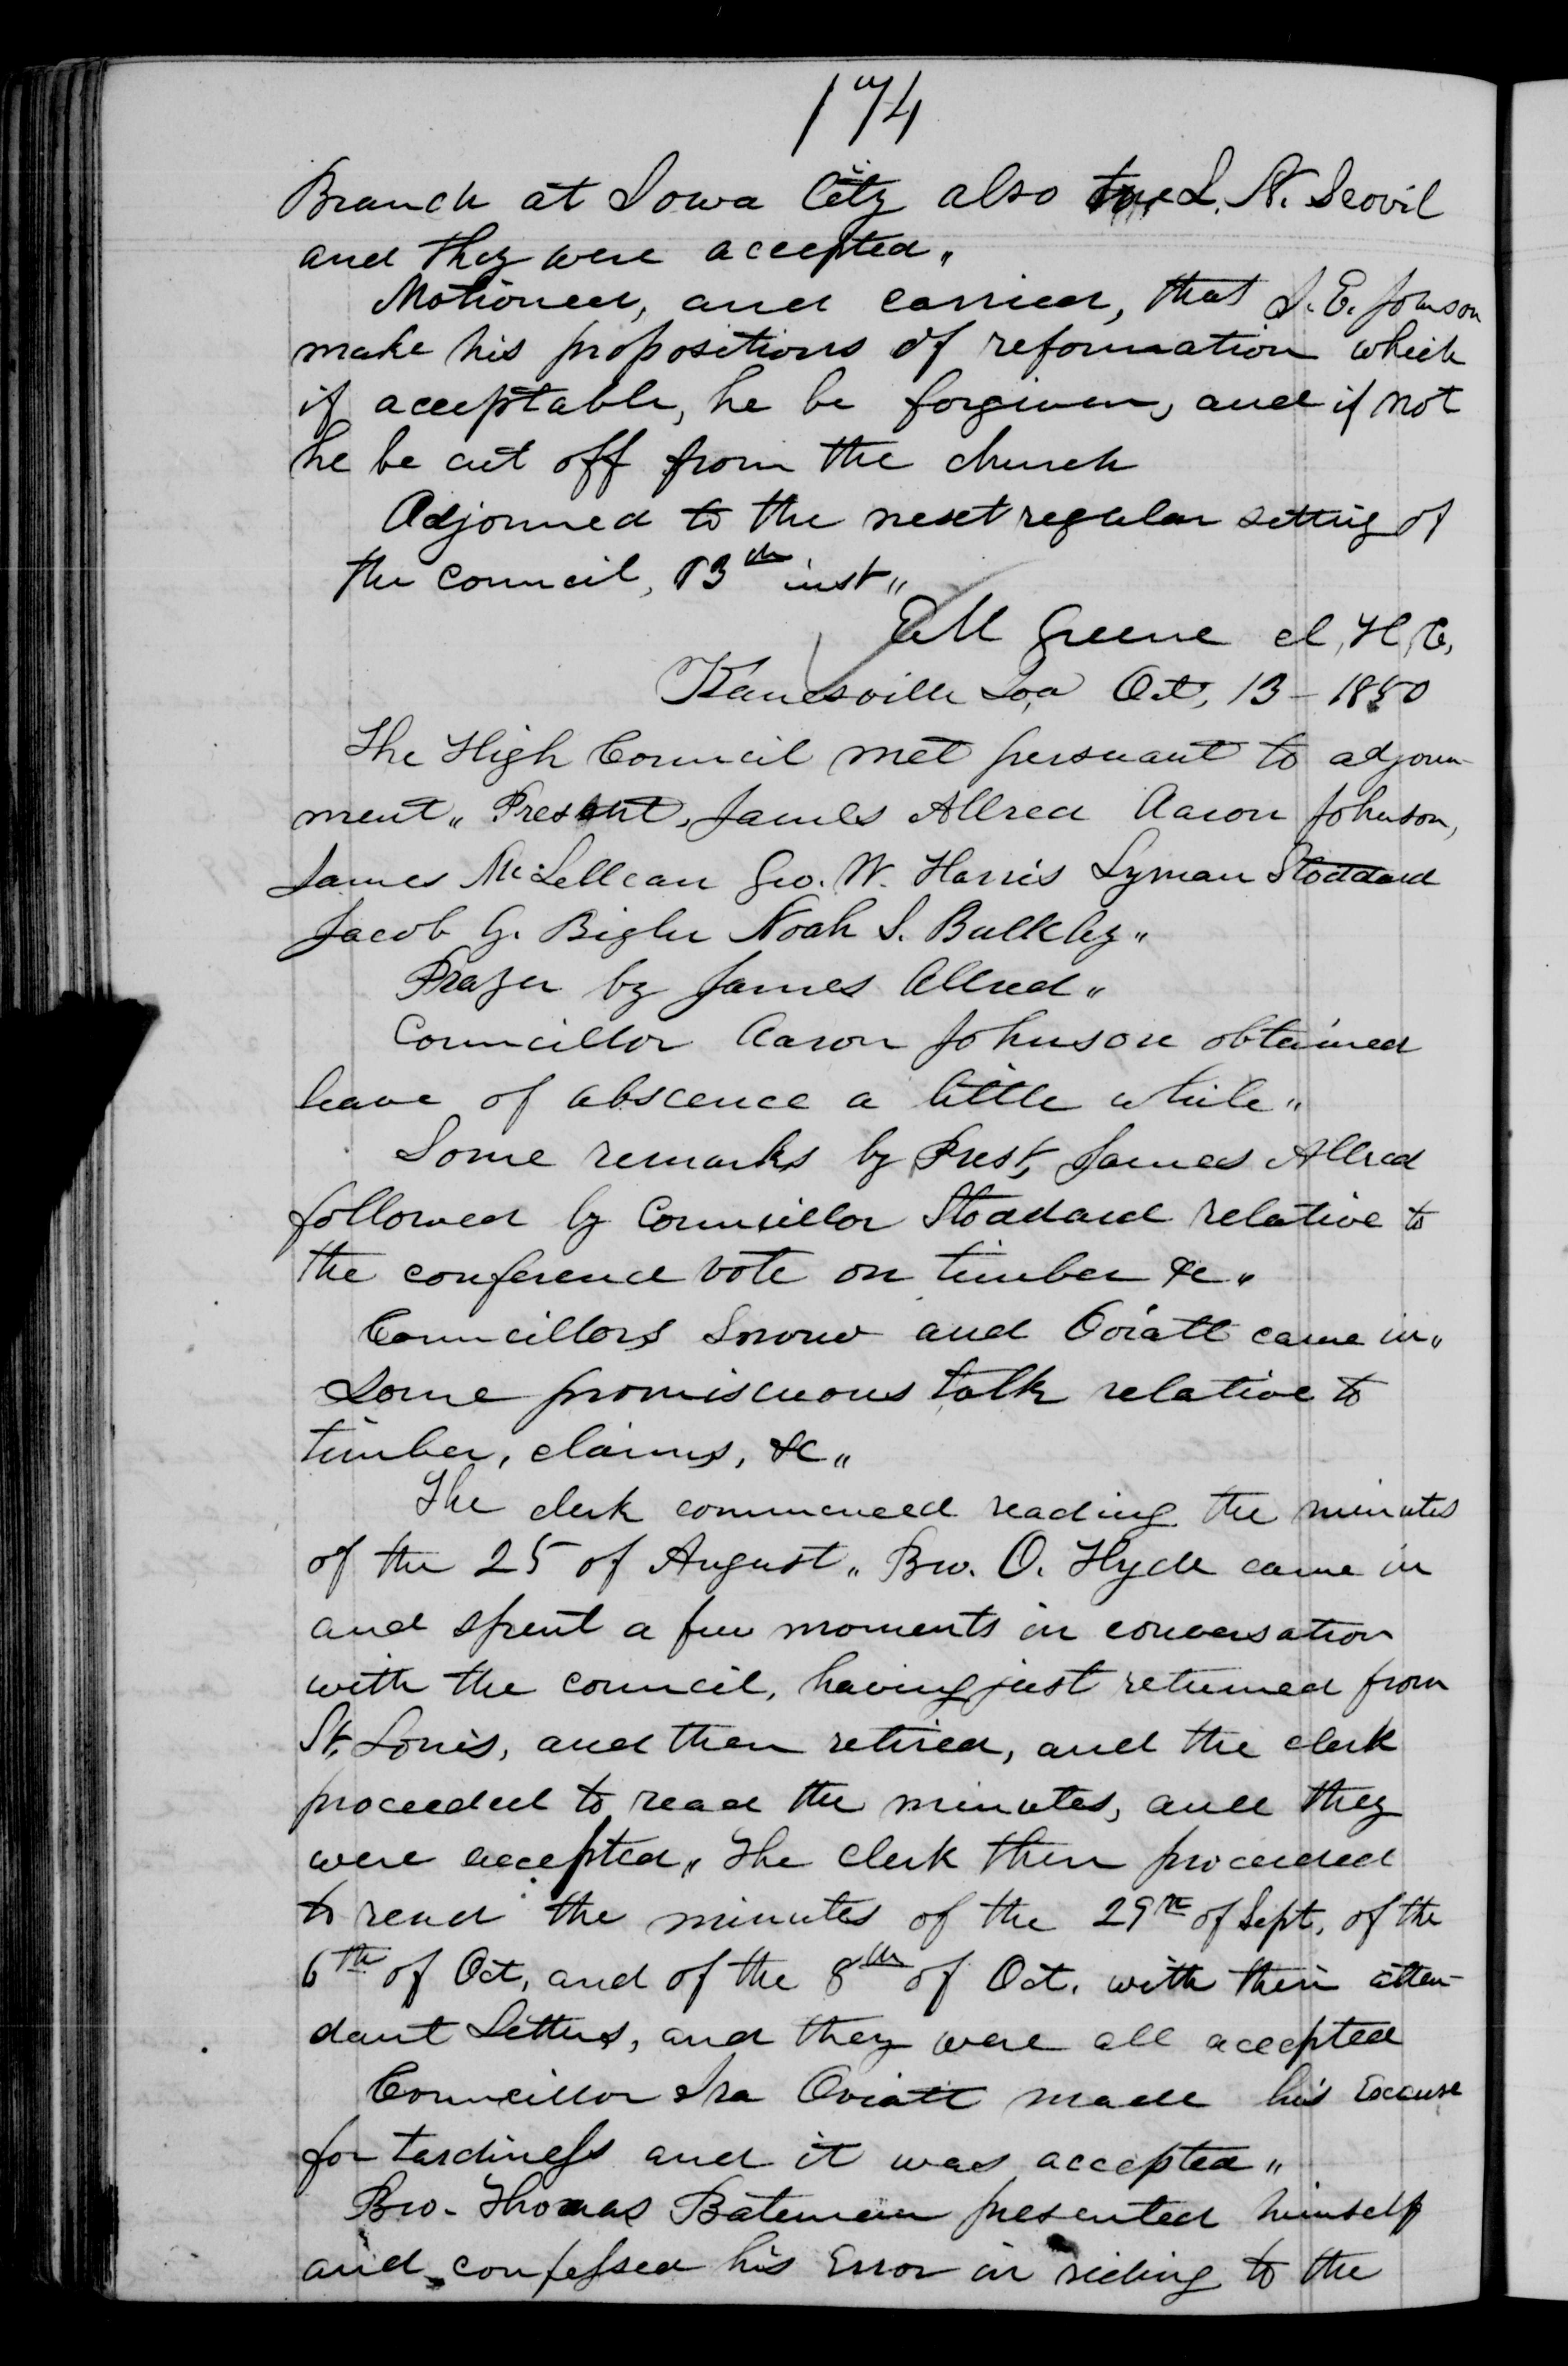 174
Branch at Iowa City also L. N. Scovil
and they were accepted„
Motioned, and carried, that J. E. Johnson
make his propositions of reformation which
if acceptable, he be forgiven, and if not
he be cut off from the church
Adjorned to the next regular setting of
the council, 13th inst„
E M Greene cl, H, C,
Kanesville Ioa Oct, 13 - 1850
The High Council met persuant to adjourn-
ment„ Present, James Allred Aaron Johnson,
James McLellean Geo. W. Harris Lyman Stoddard
Jacob G. Bigler Noah I. Bulkley„
Prayer by James Allred„
Councillor Aaron Johnson obtained
leave of abscence a little while„
Some remarks by Prest, James Allred
followed by Councillor Stoddard relative to
the conference vote on timber &c„
Councillors Snow and Oviatt came in„
Some promiscuous talk relative to
timber, claims, &c„
The clerk commenced reading the minutes
of the 25 of August„ Bro. O. Hyde came in
and spent a few moments in conversation
with the council, having just returned from
St, Louis, and then retired, and the clerk
proceeded to read the minutes, and they
were accepted„ The clerk then proceeded
to read the minutes of the 29th of Sept, of the
6th of Oct, and of the 8th of Oct. with their atten-
dant Letters, and they were all accepted
Councillor Ira Oviatt made his Excuse
for tardiness and it was accepted„
Bro. Thomas Bateman presented himself
and confessed his Error in riding to the